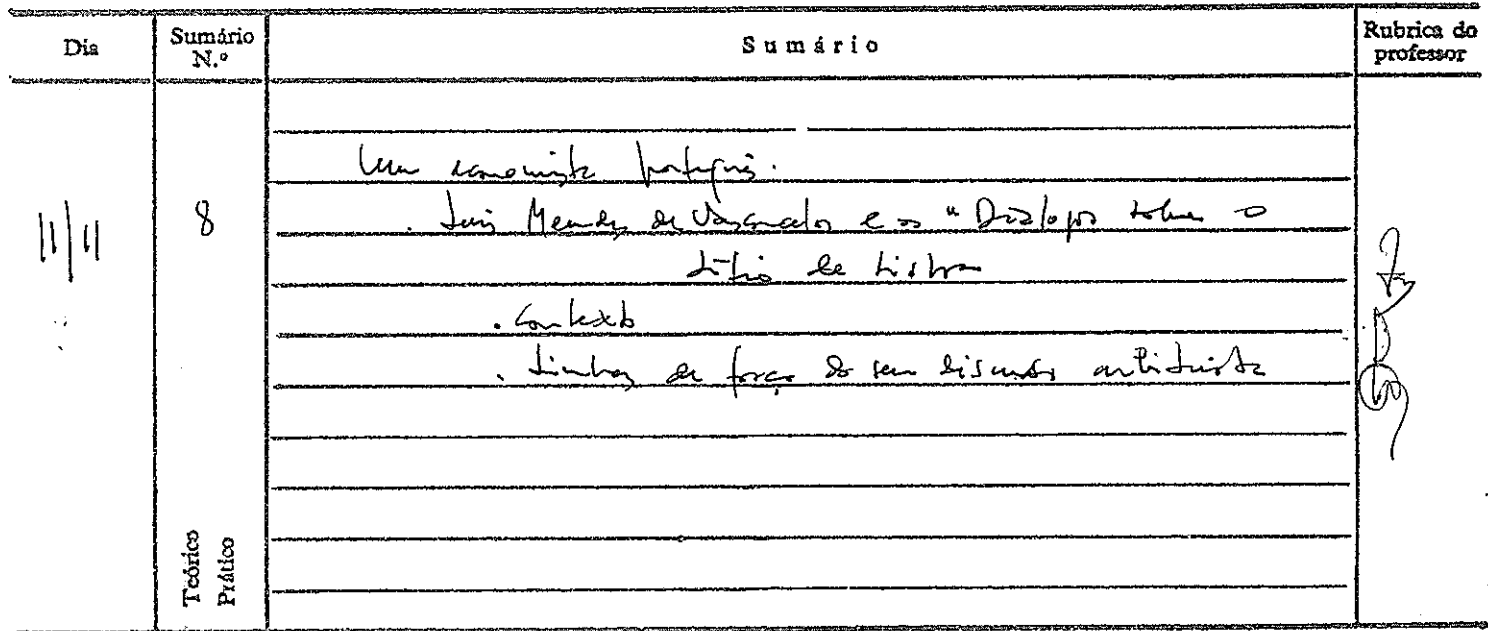 Dia
Sumário N.º
Sumário
Rubrica do professor
11/11
8
Um economista português.
. Luís Mendes de Vasconcelos e os "Diálogos sobre o
Sítio de Lisboa
. Contexto
. Linhas de força do seu discurso arbitrista
Teórico
Prático